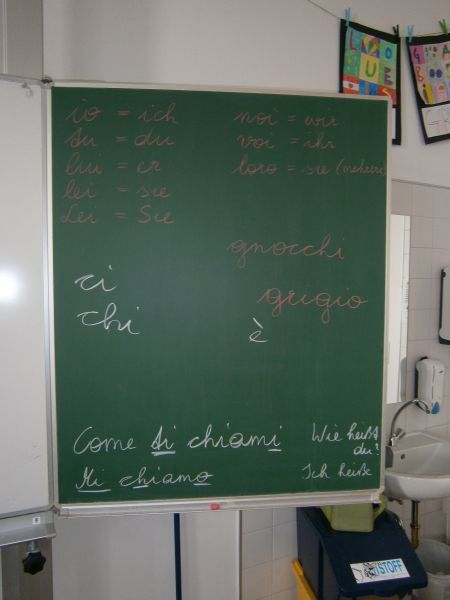 io = ich
tu = du
lui = er
lei = sie
Lei = Sie
noi = wir
voi = ihr
loro = sie (mehrere)
gnocchi
grigio
ci
chi
è
Come ti chiami
Wie heißt du?
Mi chiamo
Ich heiße
STOFF